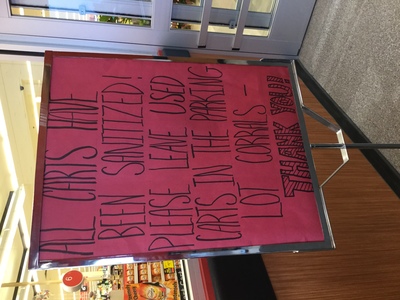 ALL CARTS HAVE
BEEN SANITIZED!
PLEASE LEAVE USED
CARTS IN THE PARKING
LOT CORRALS —
THANK YOU!